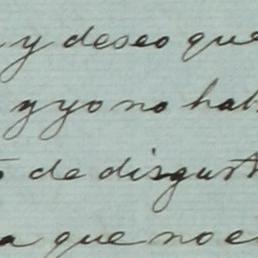 y deseo que
y yo no hab
de disgust
que no e